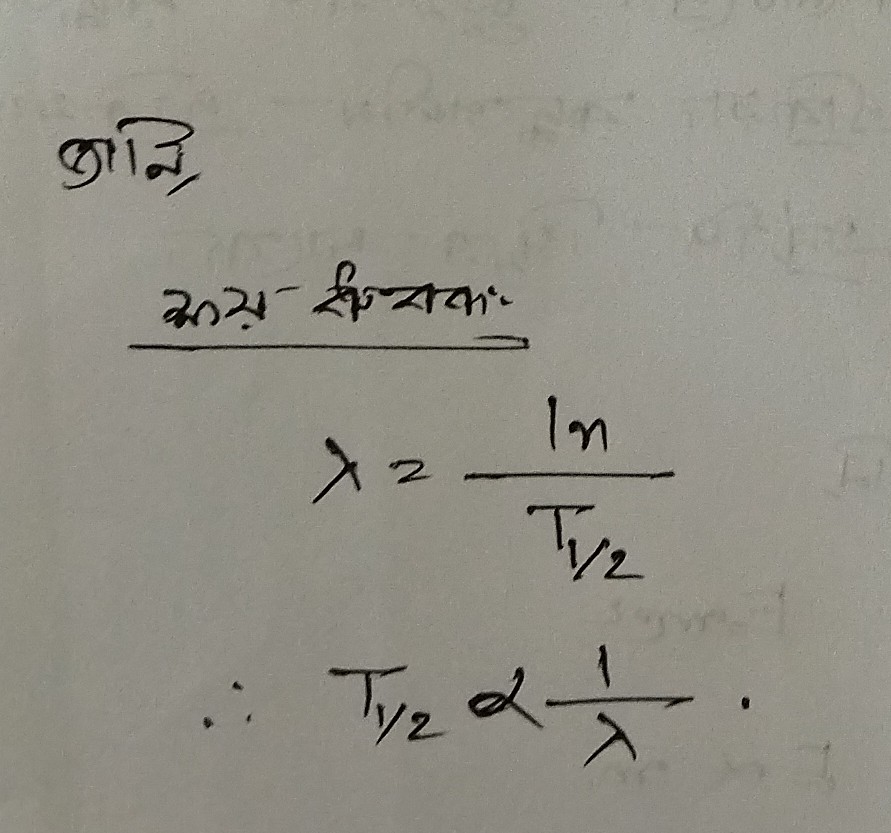 জানি,
ক্ষয় ধ্রুবক:-
λ = ln / T1/2
∴ T1/2 ∝ 1/λ .